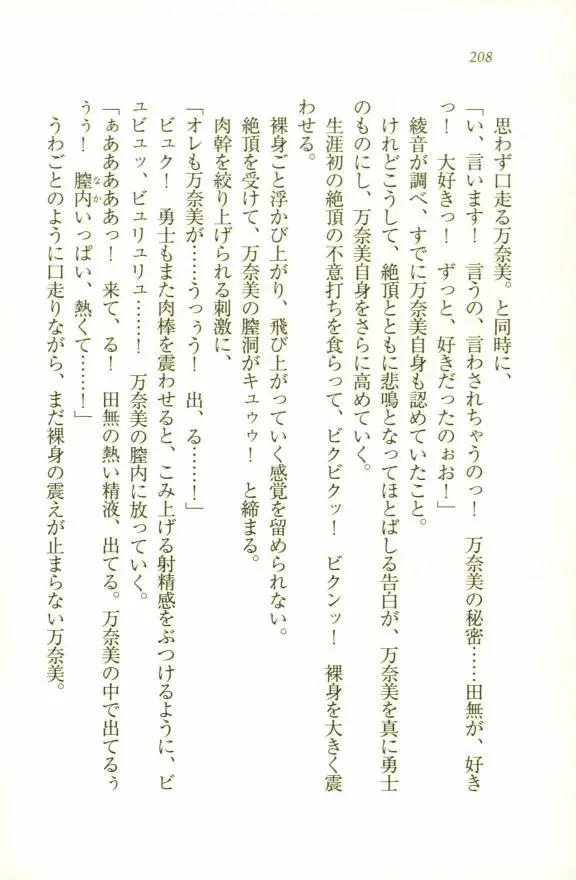 208
思わず口走る万奈美。と同時に、
「い、言います！　言うの、言わされちゃうのっ！　万奈美の秘密……田無が、好き
っ！　大好きっ！　ずっと、好きだったのぉお！」
綾音が調べ、すでに万奈美自身も認めていたこと。
けれどこうして、絶頂とともに悲鳴となってほとばしる告白が、万奈美を真に勇士
のものにし、万奈美自身をさらに高めていく。
生涯初の絶頂の不意打ちを食らって、ビクビクッ！　ビクンッ！　裸身を大きく震
わせる。
裸身ごと浮かび上がり、飛び上がっていく感覚を留められない。
絶頂を受けて、万奈美の膣洞がキュゥゥ！　と締まる。
肉幹を絞り上げられる刺激に、
「オレも万奈美が……うっぅう！　出、る……！」
ビュク！　勇士もまた肉棒を震わせると、こみ上げる射精感をぶつけるように、ビ
ュビュッ、ビュリュリュ……！　万奈美の膣内に放っていく。
「ぁああああぁっ！　来て、る！　田無の熱い精液、出てる。万奈美の中で出てるぅ
ぅぅ！　膣内いっぱい、熱くて……！」
なか
うわごとのように口走りながら、まだ裸身の震えが止まらない万奈美。